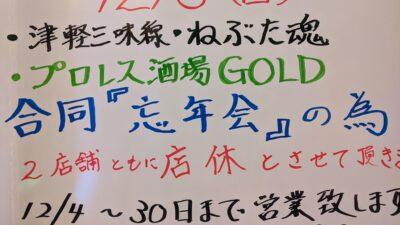 ・津軽三味線・ねぶた魂
・プロレス酒場GOLD
合同『忘年会』の為
2店舗ともに店休とさせて頂きま
12/4 〜30日まで営業致しま